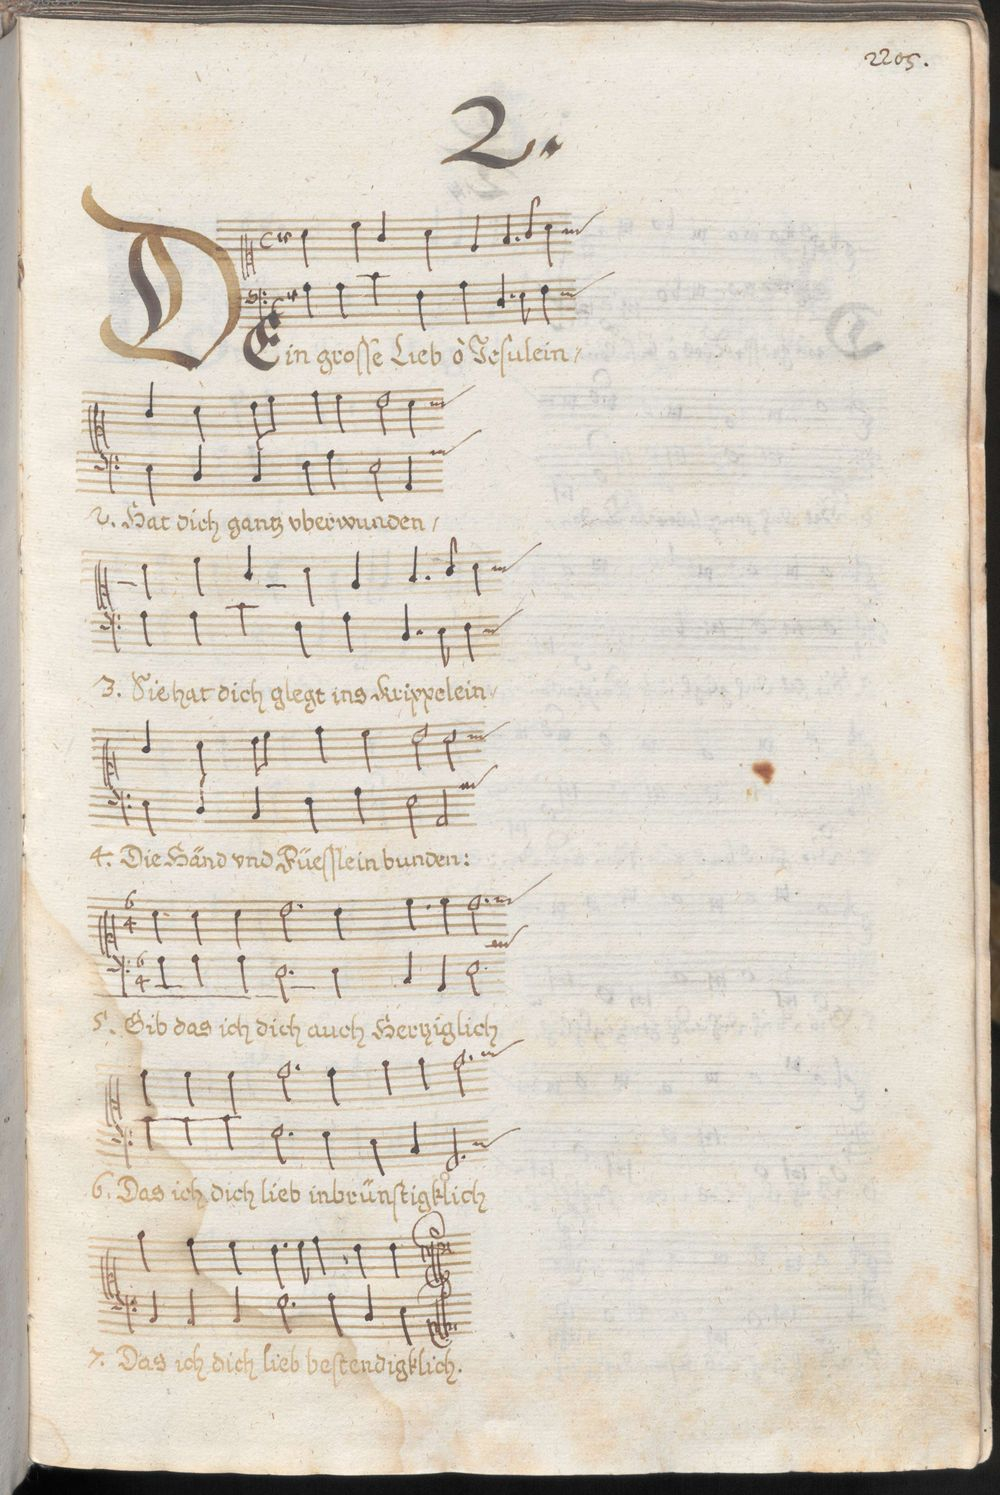 2205.
2.
DEin grosse Lieb ô Jesulein /
2. Hat dich gantz vberwunden /
3. Sie hat dich glegt ins Krippelein /
4. Die Händ vnd Füesslein bunden:
6 4
6 4
5. Gib das ich dich auch Hertziglich
6. Das ich dich lieb inbrünstigklich
7. Das ich dich lieb bestendigklich.